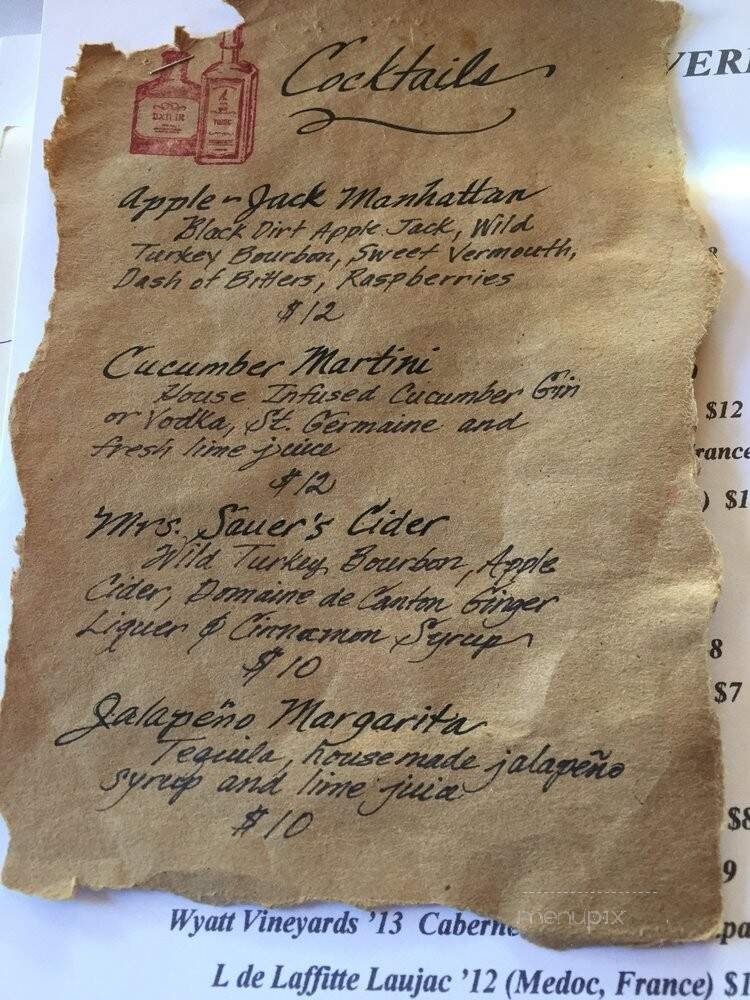 Cocktails
VER
Apple-Jack Manhattan
Black Dirt Apple Jack, Wild
Turkey Bourbon, Sweet Vermouth,
Dash of Bitters, Raspberries
$12
Cucumber Martini
House Infused Cucumber Gin
or Vodka, St. Germaine and
fresh lime juice
$12
$12
rance
) $1
Mrs. Sauer's Cider
Wild Turkey Bourbon, Apple
Cider, Domaine de Canton Ginger
Liquer & Cinnamon Syrup
$10
8
$7
Jalapeño Margarita
Tequila, housemade jalapeño
syrup and lime juice
$10
$8
9
menupix
Wyatt Vineyards '13 Caberne
.pa
L de Laffitte Laujac '12 (Medoc, France) $1